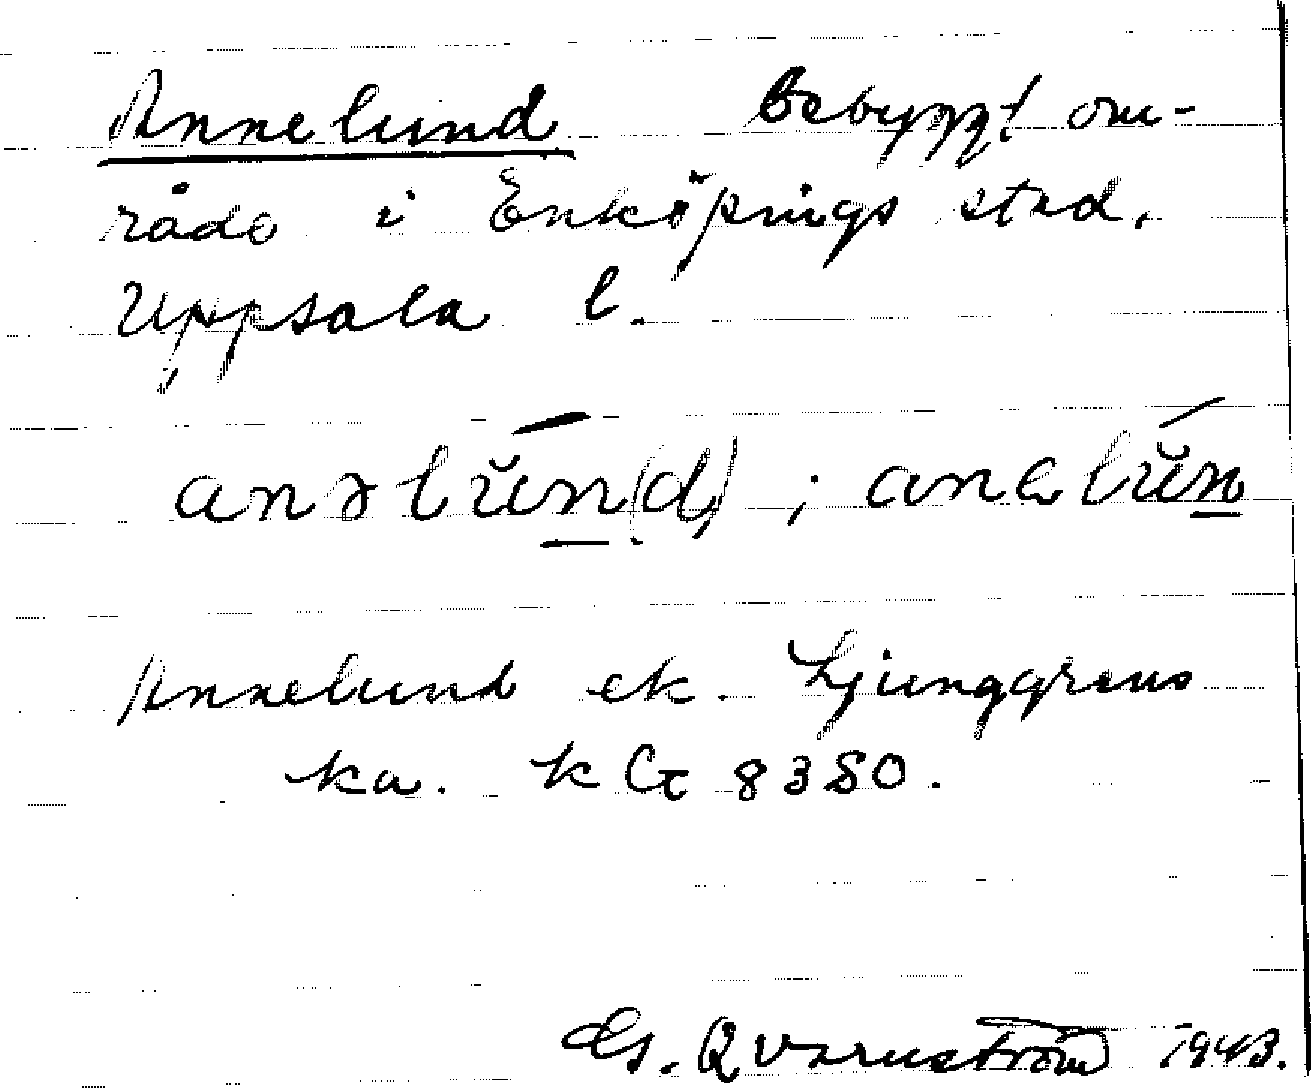 Annelund bebyggt om-
råde i Enköpings stad,
Uppsala l.
anəlŭn(d) ; anelŭn
Annelund ek. Ljunggrens
ka. k G 8380.
Gs. Qvarnström 1943.